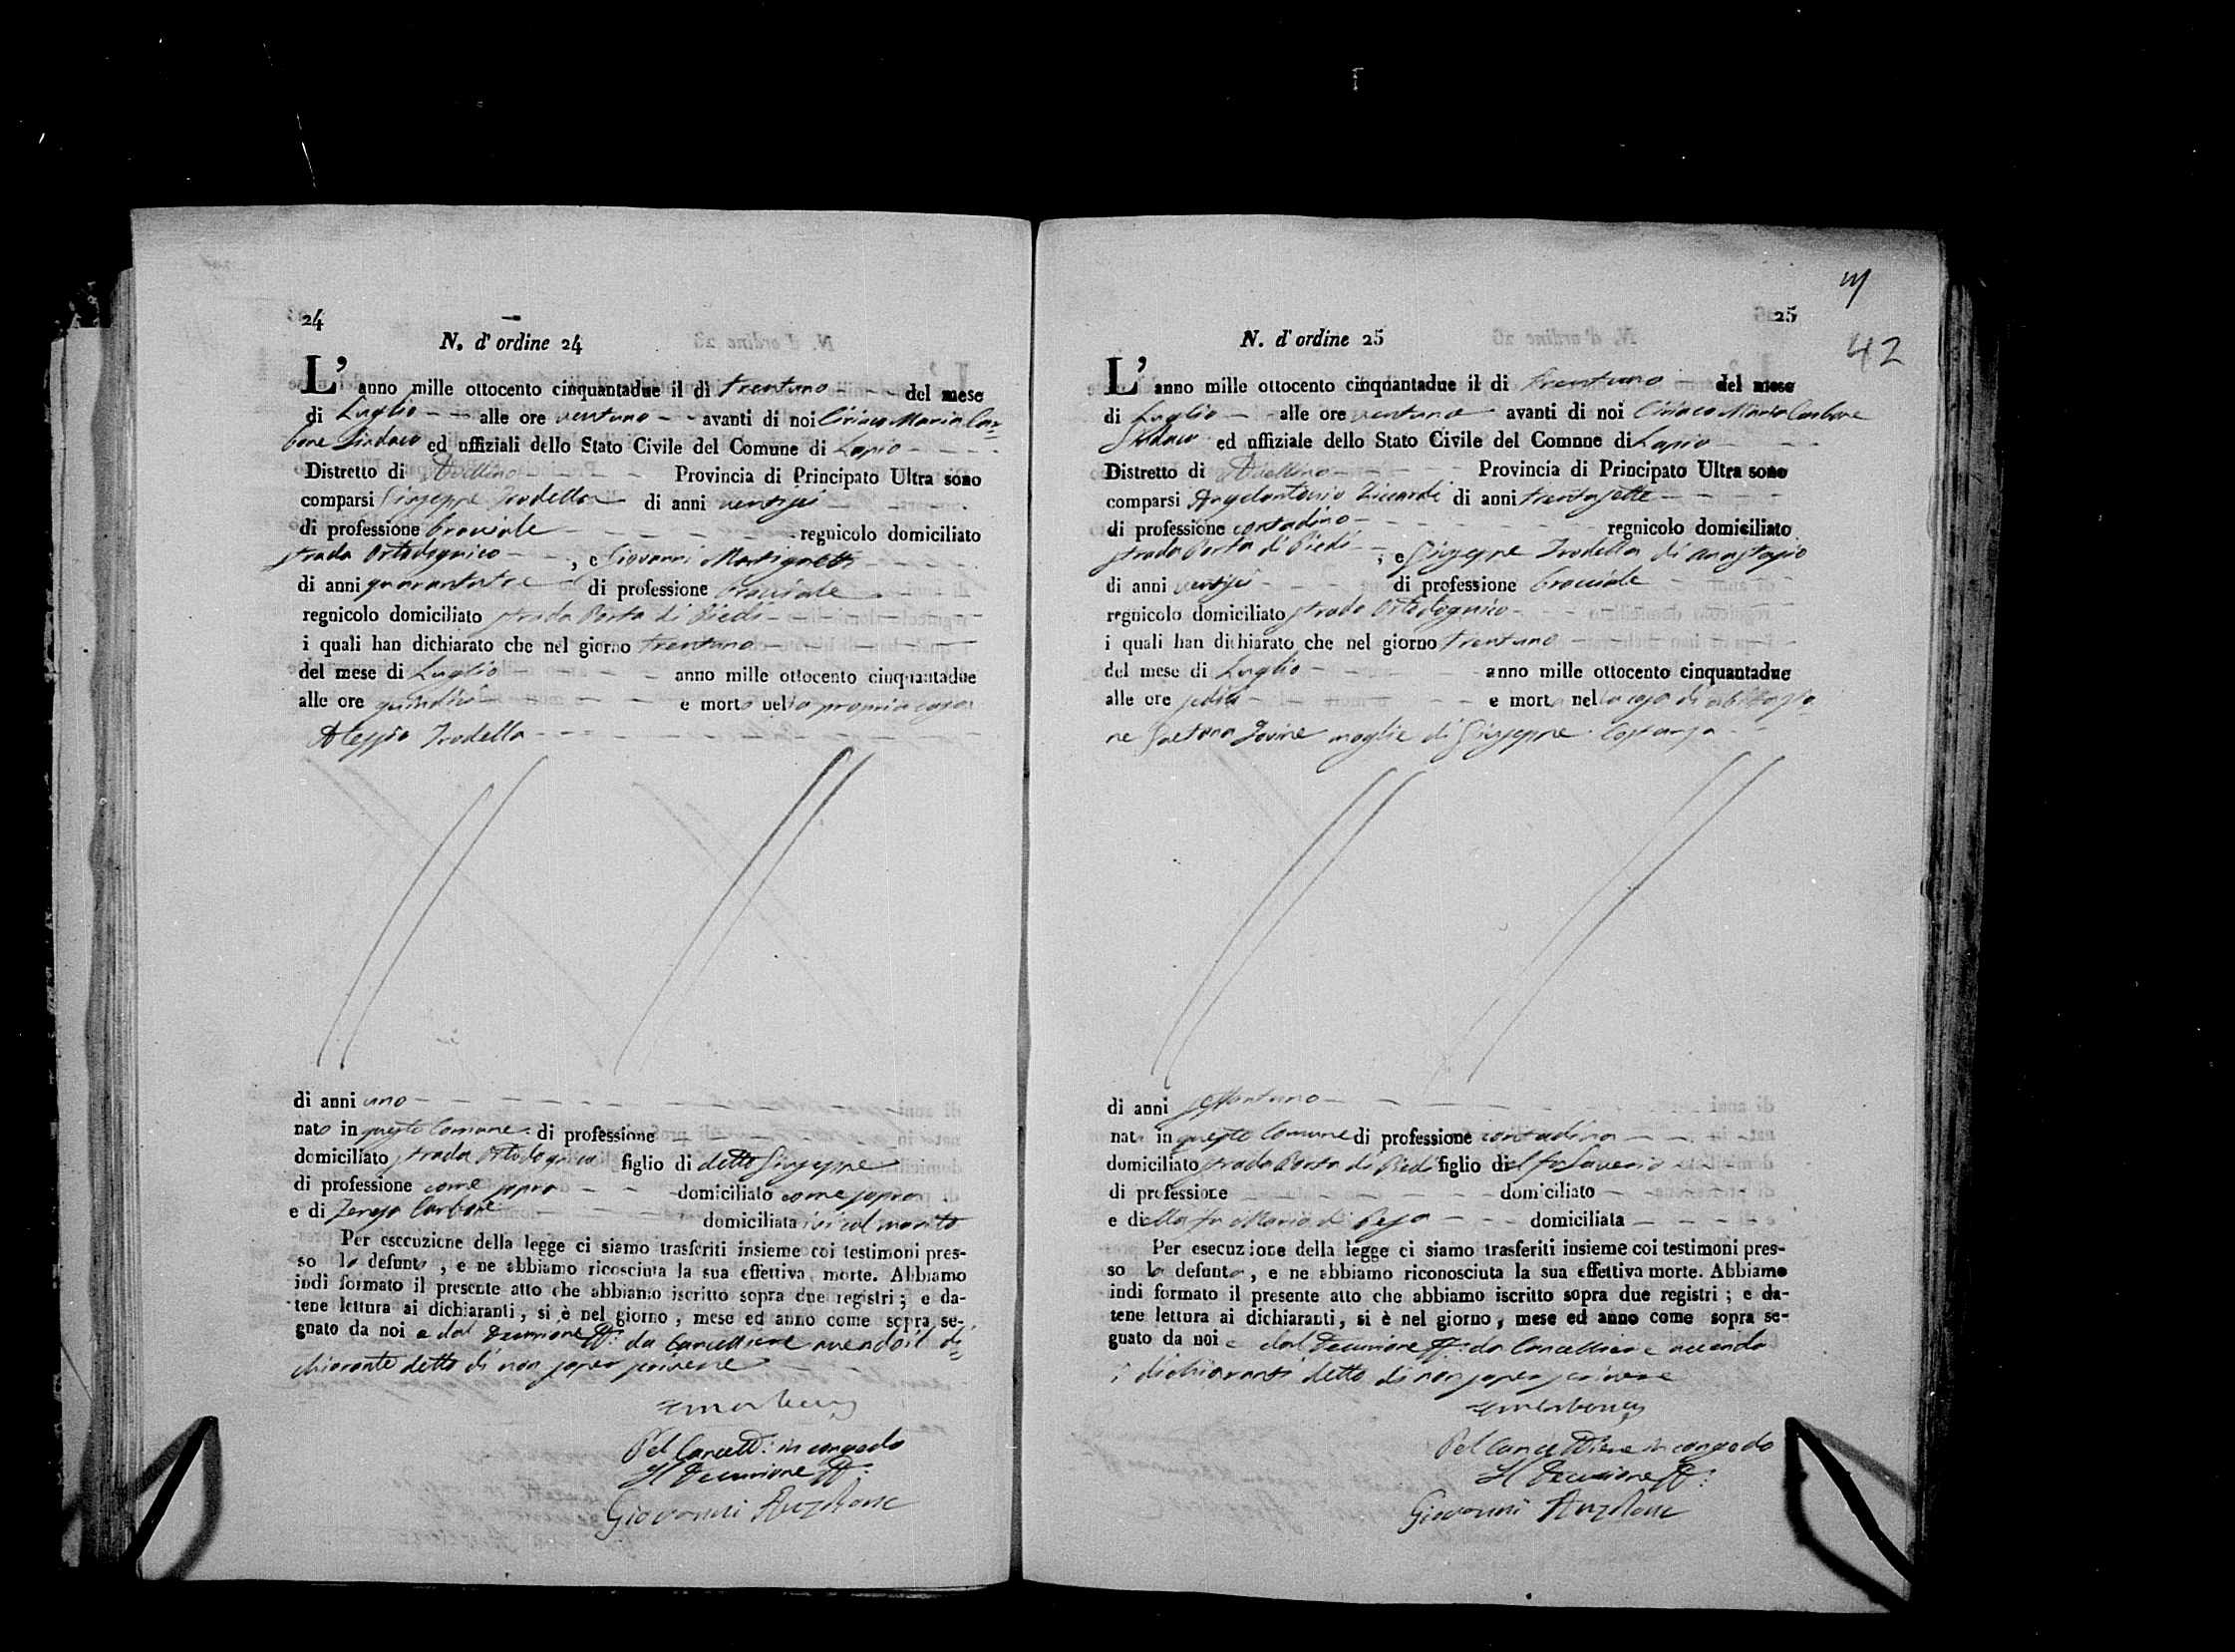 24
N. d' ordine 24
L' anno mille ottocento cinquantadue il di trentuno del mese
di Luglio alle ore ventuno avanti di noi Ciriaco Maria Car=
bone Sindaco ed uffiziali dello Stato Civile del Comune di Lapio
Distretto di Avellino Provincia di Principato Ultra sono
comparsi Giuseppe Trodella di anni ventisei
di professione bracciale regnicolo domiciliato
strada Ortodognico, e Giovanni Martignetti
di anni quarantatre di professione bracciale
regnicolo domiciliato strada Porta di Piedi
i quali han dichiarato che nel giorno trentuno
del mese di Luglio anno mille ottocento cinquantadue
alle ore quindici e morto nella propria casa
Alessio Trodella
di anni uno
nato in questo Comune di professione
domiciliato strada Ortodognico figlio di detto Giuseppe
di professione come sopra domiciliato come sopra
e di Teresa Carbone domiciliata ivi col marito
Per esecuzione della legge ci siamo trasferiti insieme coi testimoni pres-
so lo defunto, e ne abbiamo ricosciuta la sua effettiva morte. Abbiamo
indi formato il presente atto che abbiamo iscritto sopra due registri; e da-
tene lettura ai dichiaranti, si è nel giorno, mese ed anno come sopra se-
gnato da noi e dal Decurione ff: da Cancelliere avendo il di=
chiarante detto di non saper scrivere
Pel Cancell: in congedo
Il Decurione ff:
Giovanni
25
42
N. d' ordine 25
L' anno mille ottocento cinquantadue il di trentuno del mese
di Luglio alle ore ventuno avanti di noi Ciriaco Maria Carbone
Sindaco ed uffiziale dello Stato Civile del Comune di Lapio
Distretto di Avellino Provincia di Principato Ultra sono
comparsi Angelantonio Ziccardi di anni trentasette
di professione contadino regnicolo domiciliato
strada Porta di Piedi, e Giuseppe Trodella di Anastasio
di anni ventisei di professione bracciale
regnicolo domiciliato strada Ortodognico
i quali han dichiarato che nel giorno trentuno
del mese di Luglio anno mille ottocento cinquantadue
alle ore sedici e morta nella casa di abitazio=
ne Gaetana Iovine moglie di Giuseppe Costanza
di anni settantuno
nata in questo Comune di professione contadina
domiciliato strada Porta di Piedi figlio del fu Saverio
di professione domiciliato
e della fu Maria di domiciliata
Per esecuzione della legge ci siamo trasferiti insieme coi testimoni pres-
so la defunta, e ne abbiamo riconosciuta la sua effettiva morte. Abbiamo
indi formato il presente atto che abbiamo iscritto sopra due registri; e da-
tene lettura ai dichiaranti, si è nel giorno, mese ed anno come sopra se-
gnato da noi e dal Decurione ff: da Cancelliere avendo
i dichiaranti detto di non saper scrivere
Pel Cancelliere in congedo
Il Decurione ff:
Giovanni